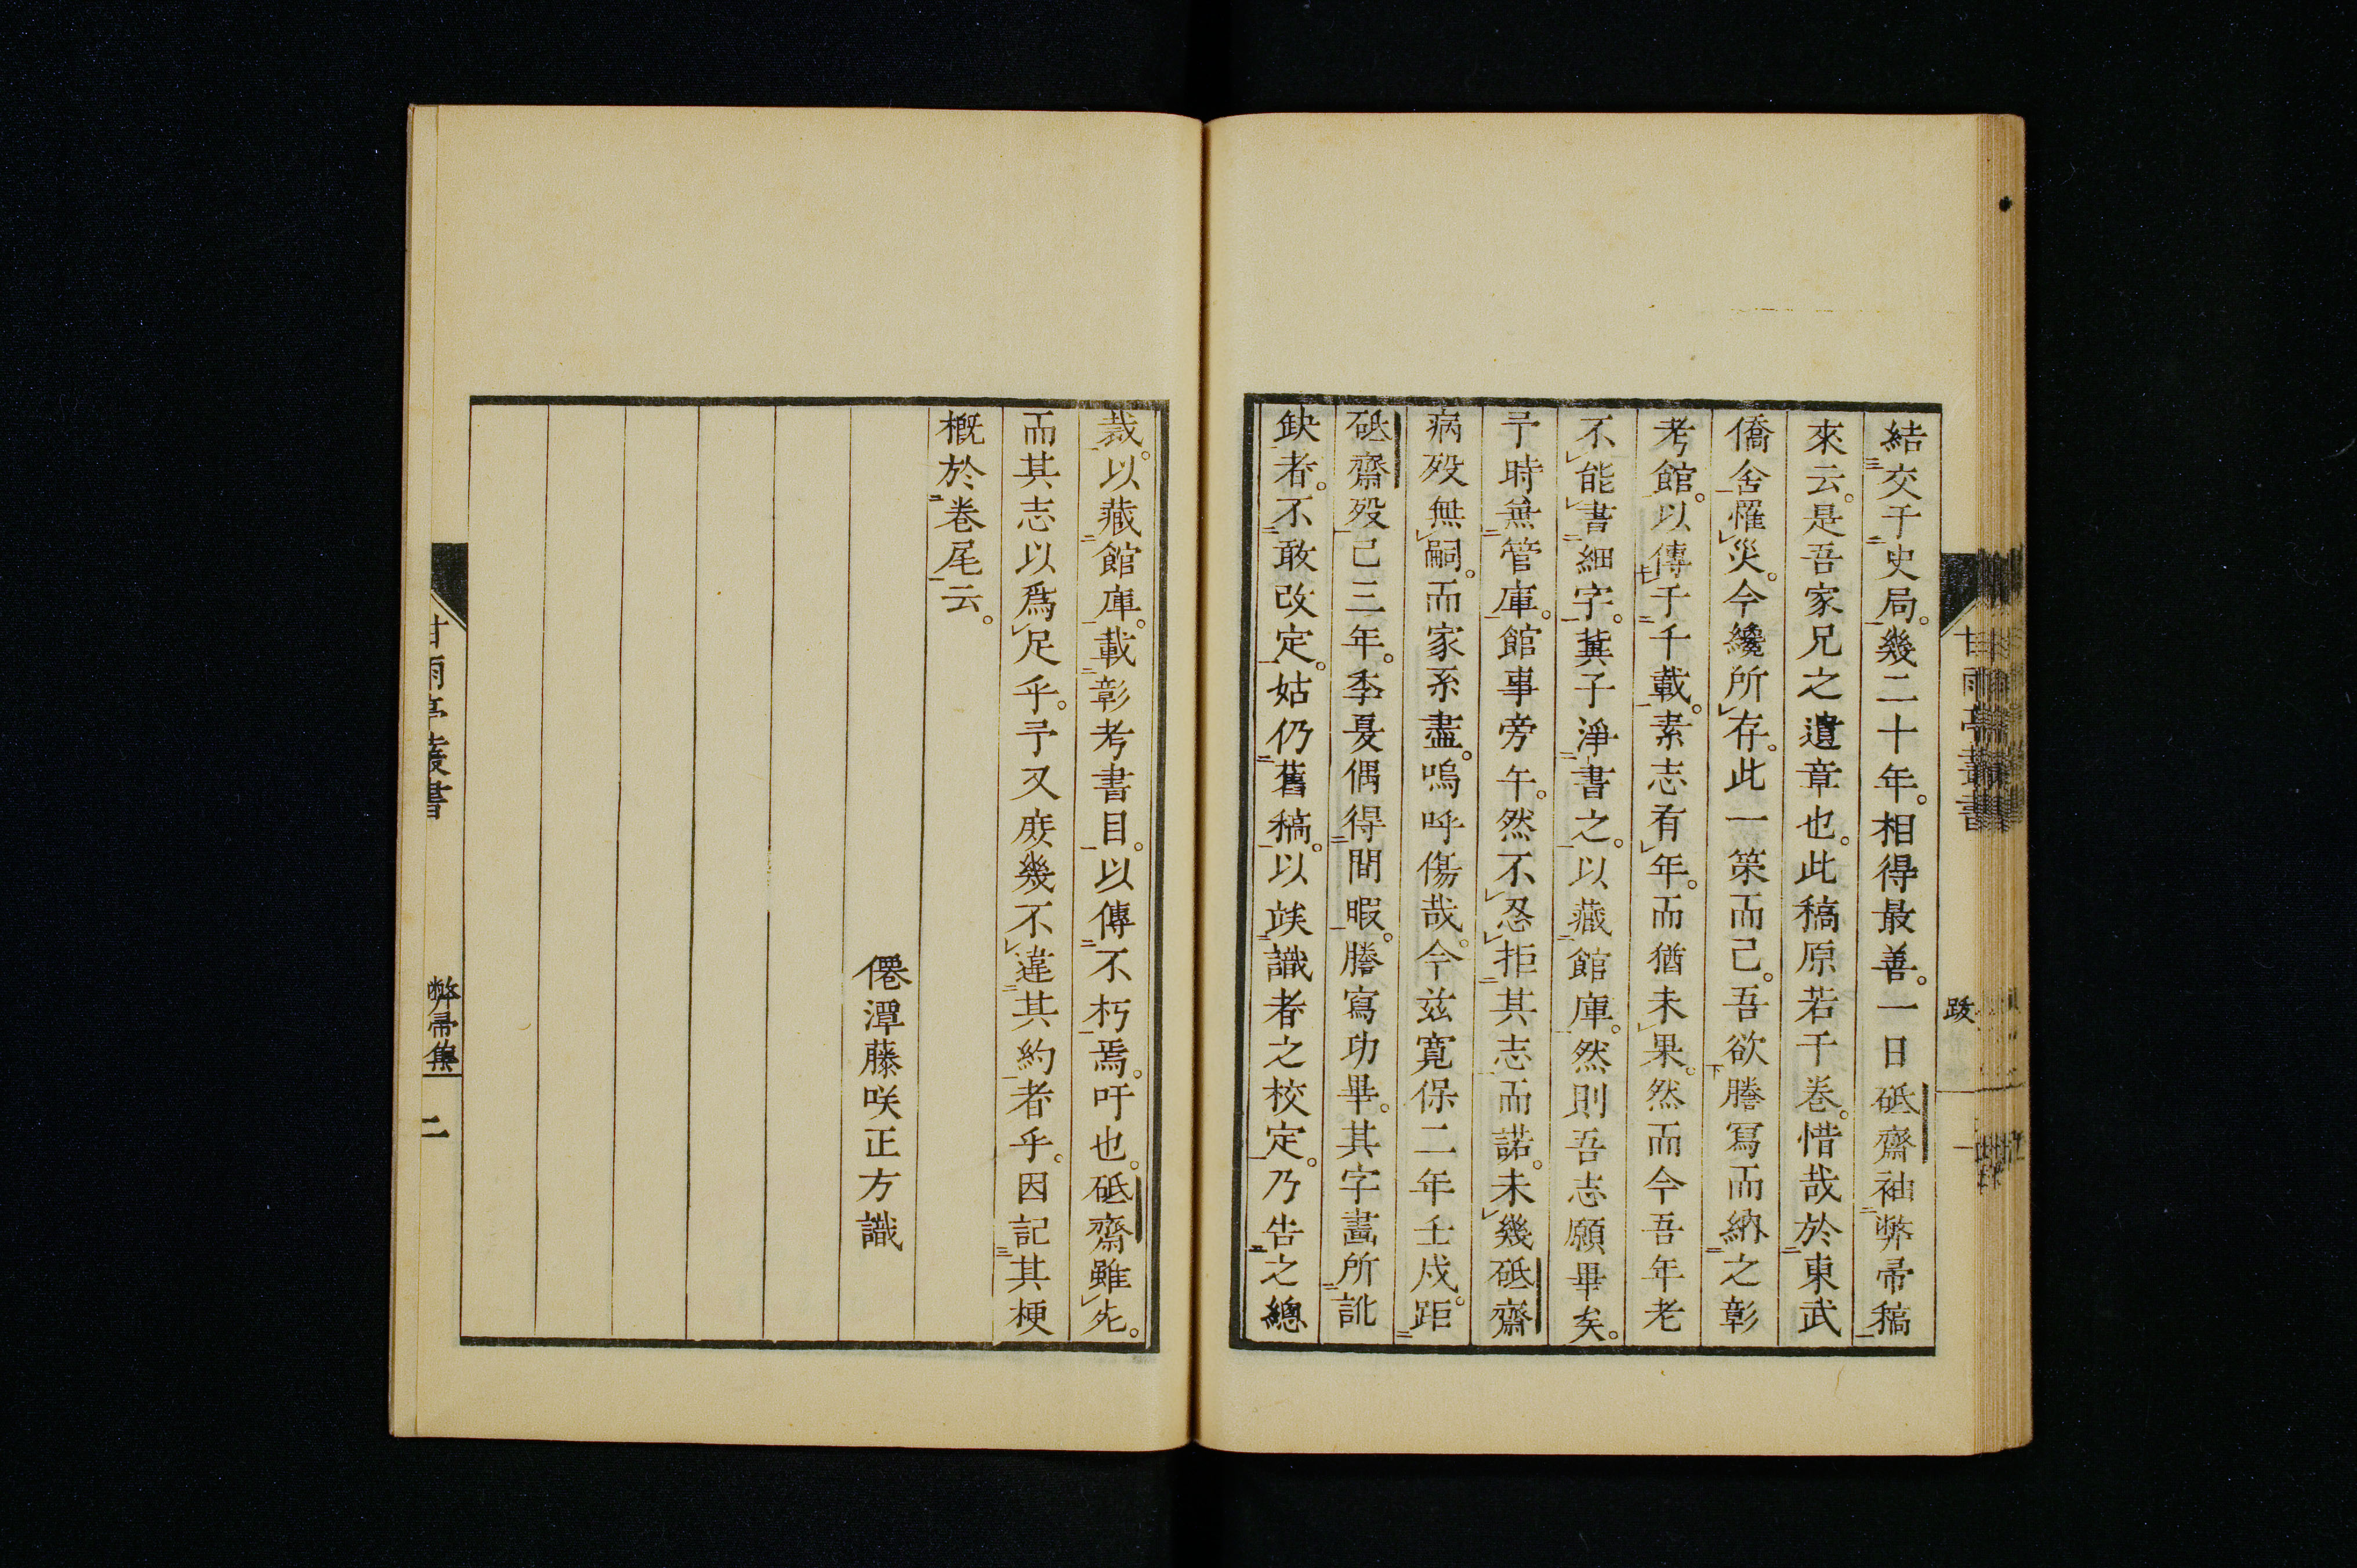 結交于史局。幾二十年。相得最善。一日砥齋袖弊帚稿
來云。是吾家兄之遺章也。此稿原若干卷。惜哉於東武
僑舍罹災。今纔所存。此一策而已。吾欲謄寫而納之彰
考館。以傳于千載。素志有年。而猶未果。然而今吾年老
不能書細字。冀子淨書之。以藏館庫。然則吾志願畢矣。
予時兼管庫。館事旁午。然不忍拒其志而諾。未幾砥齋
病歿無嗣。而家系盡。嗚呼傷哉。今茲寬保二年壬戌。距
砥齋歿已三年。季夏偶得間暇。謄寫功畢。其字畫所訛
缺者。不敢改定。姑仍舊稿。以竢識者之校定。乃告之總
裁。以藏館庫。載彰考書目。以傳不朽焉。吁也。砥齋雖死。
而其志以爲足乎。予又庶幾不違其約者乎。因記其梗
概於卷尾云。
僊潭藤咲正方識
甘雨亭叢書
跋
一
甘雨亭叢書
弊帚集
二